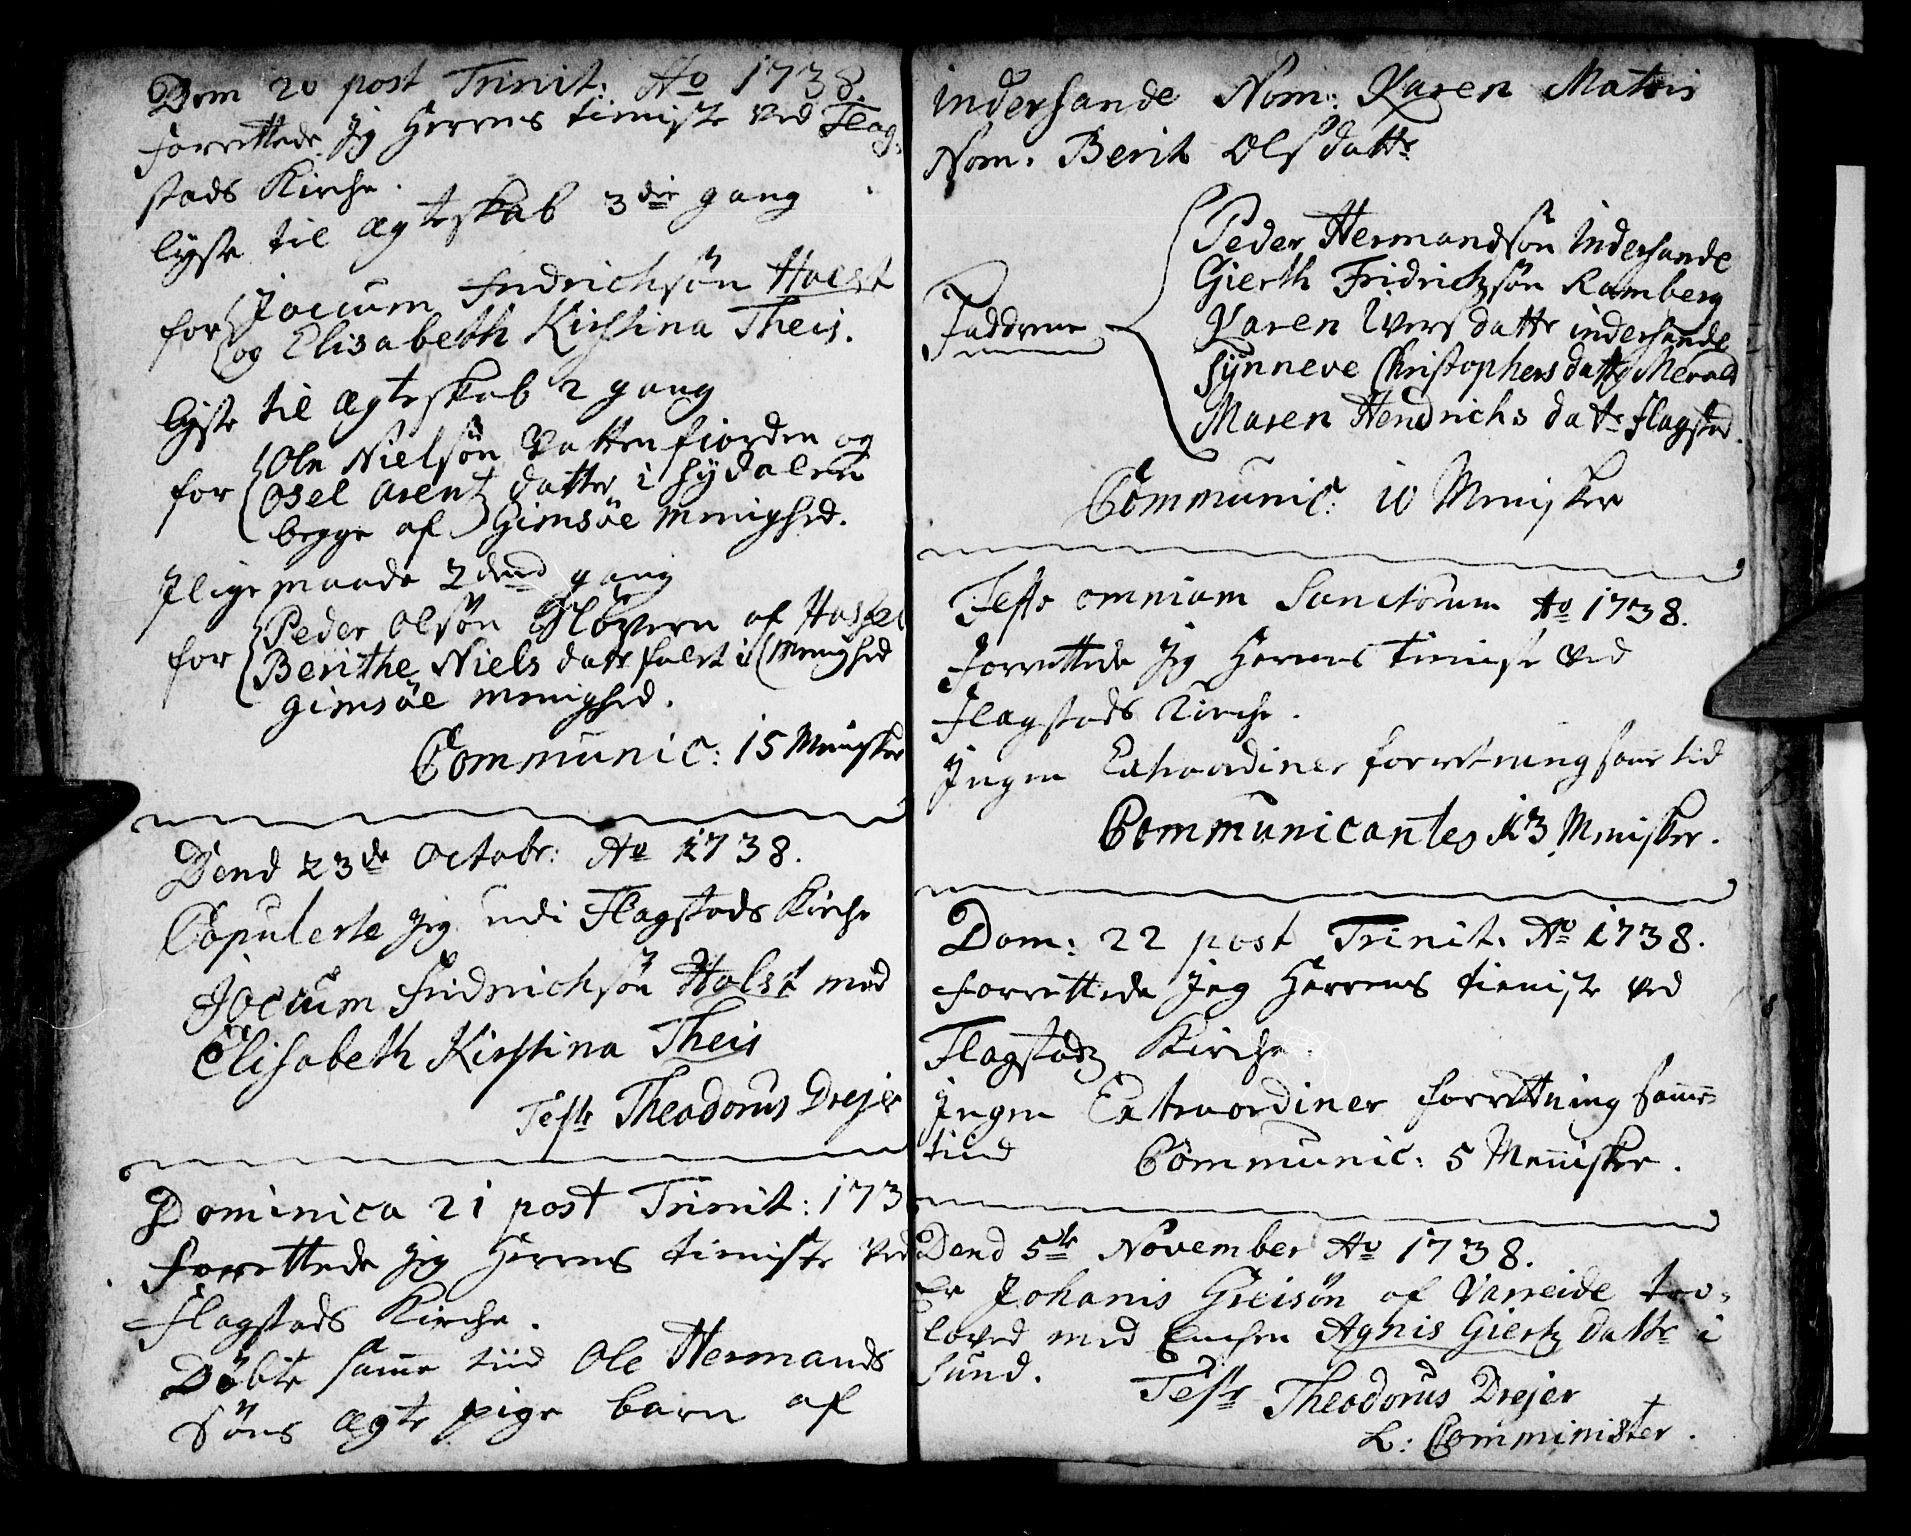 Dom 20 post Trinit: Ao 1738.
forrettede Jeg Herrens tieniste ved Flag-
stads Kirche.
lyste til Ægteskab 3die gang
for Jocum Fridrichsön Holst
og Elisabeth Kirstina Theis.
lyste til Ægteskab 2 gang
for Ole Nielsön Vattenfiorden og
Osel Arentz datter i Sydalen
begge af Gimsöe Menighed.
Jligemaade 2dend gang
for Peder Olsön af Hassel
Berithe Niels datr i Menighed
Gimsöe Menighed.
Communic: 15 Mennisker
Dend 23de Octobr: Ao 1738.
Copulerte Jeg udi Flagstads Kirche
Jocum Fridrichsön Holst med
Elisabeth Kirstina Theis
Test: Theodorus Drejer
Dominica 21 post Trinit: 173
forrettede Jeg Herrens tieniste ved
Flagstads Kirche.
Döbte samme tiid Ole Hermands
Söns ægte pige barn af
indersande Nom: Karen Matris
Nom. Berit Olsdattr
Peder Hermandsön Indersande
Gierth Fridrichsön Ramberg
Faddrene Karen Iversdattr indersande
Synneve Christophersdattr
Maren Hendrichs dattr Flagstad.
Communic: 10 Mennisker
Festo omnium Sanctorum Ao 1738.
forrettede Jeg Herrens tieniste ved
Flagstads Kirche.
Jngen Extraordiner forretning samme tid
Communicantes 13 Mennisker.
Dom: 22 post Trinit. Ao 1738.
forrettede Jeg Herrens tieniste ved
Flagstads Kirche.
Jngen Extraordiner forretning samme
tiid Communic: 5 Mennisker.
Dend 5te November Ao 1738.
Er Johanis Greisön af Varreide tro-
loved med Agnis Giertz dattr i
Sund.
Test: Theodorus Drejer
L: Comminister.